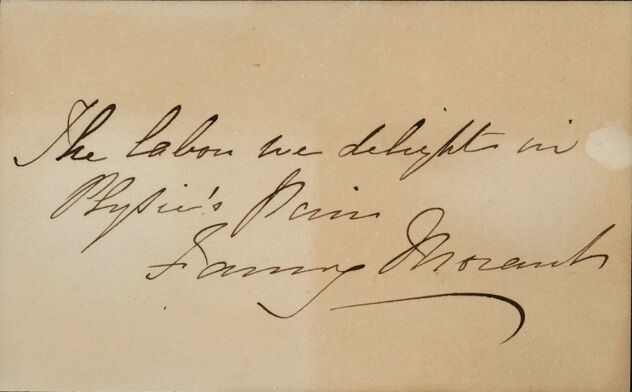 The labou we delights in
Physic's Pain
Fanny Morant